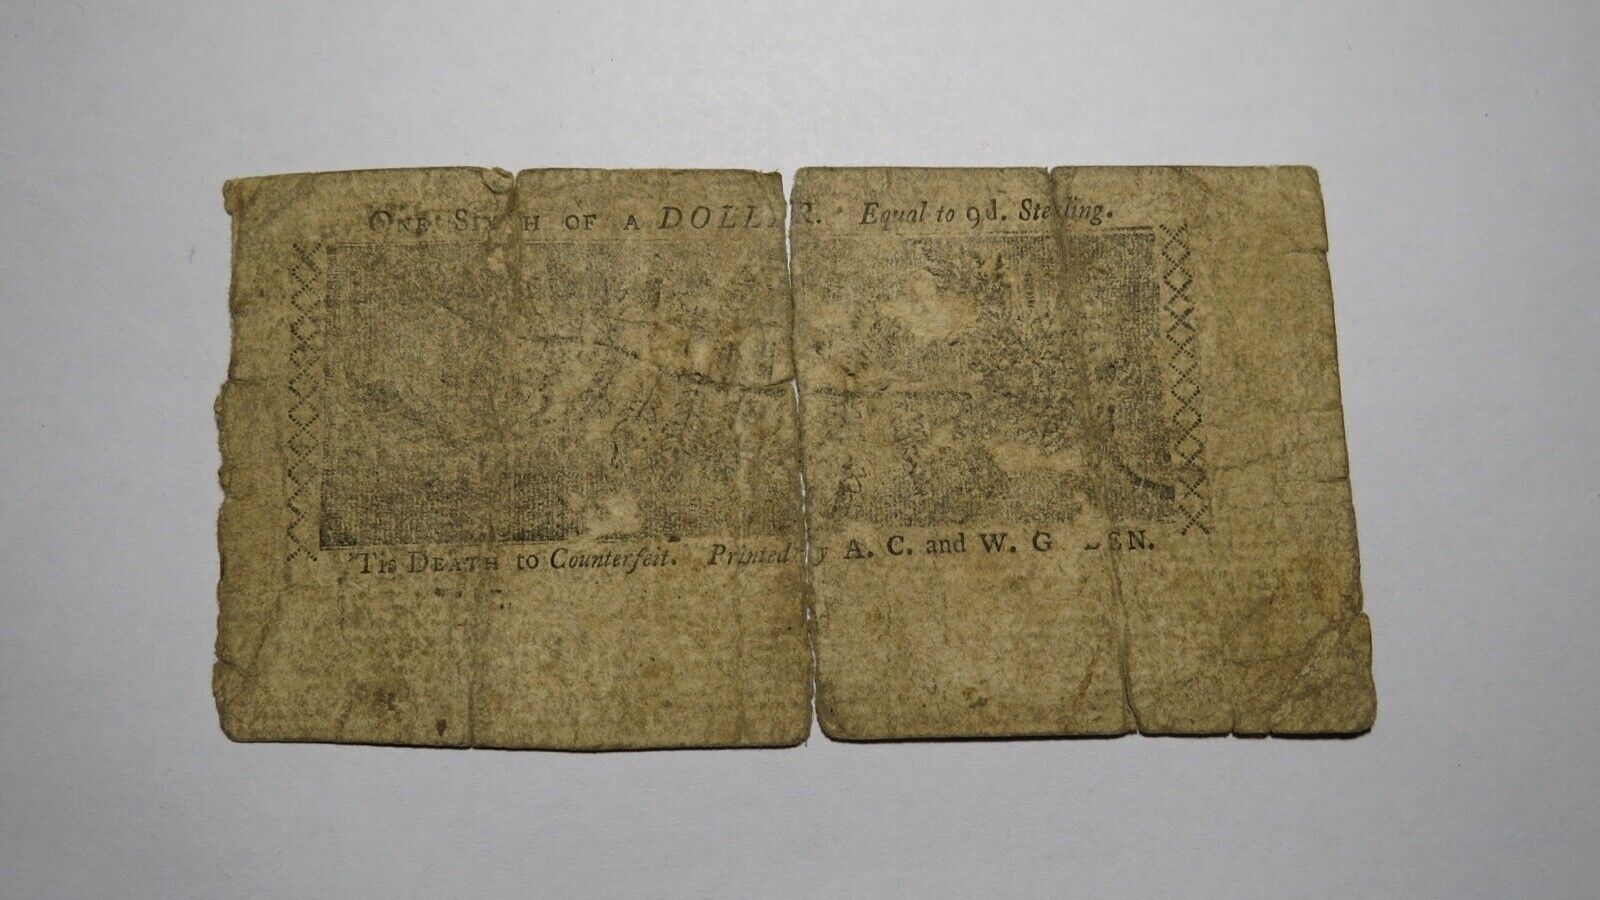 ONE SIXTH OF A DOLLAR. Equal to 9d. Sterling.
'TIS DEATH to Counterfeit. Printed by A. C. and W. GREEN.